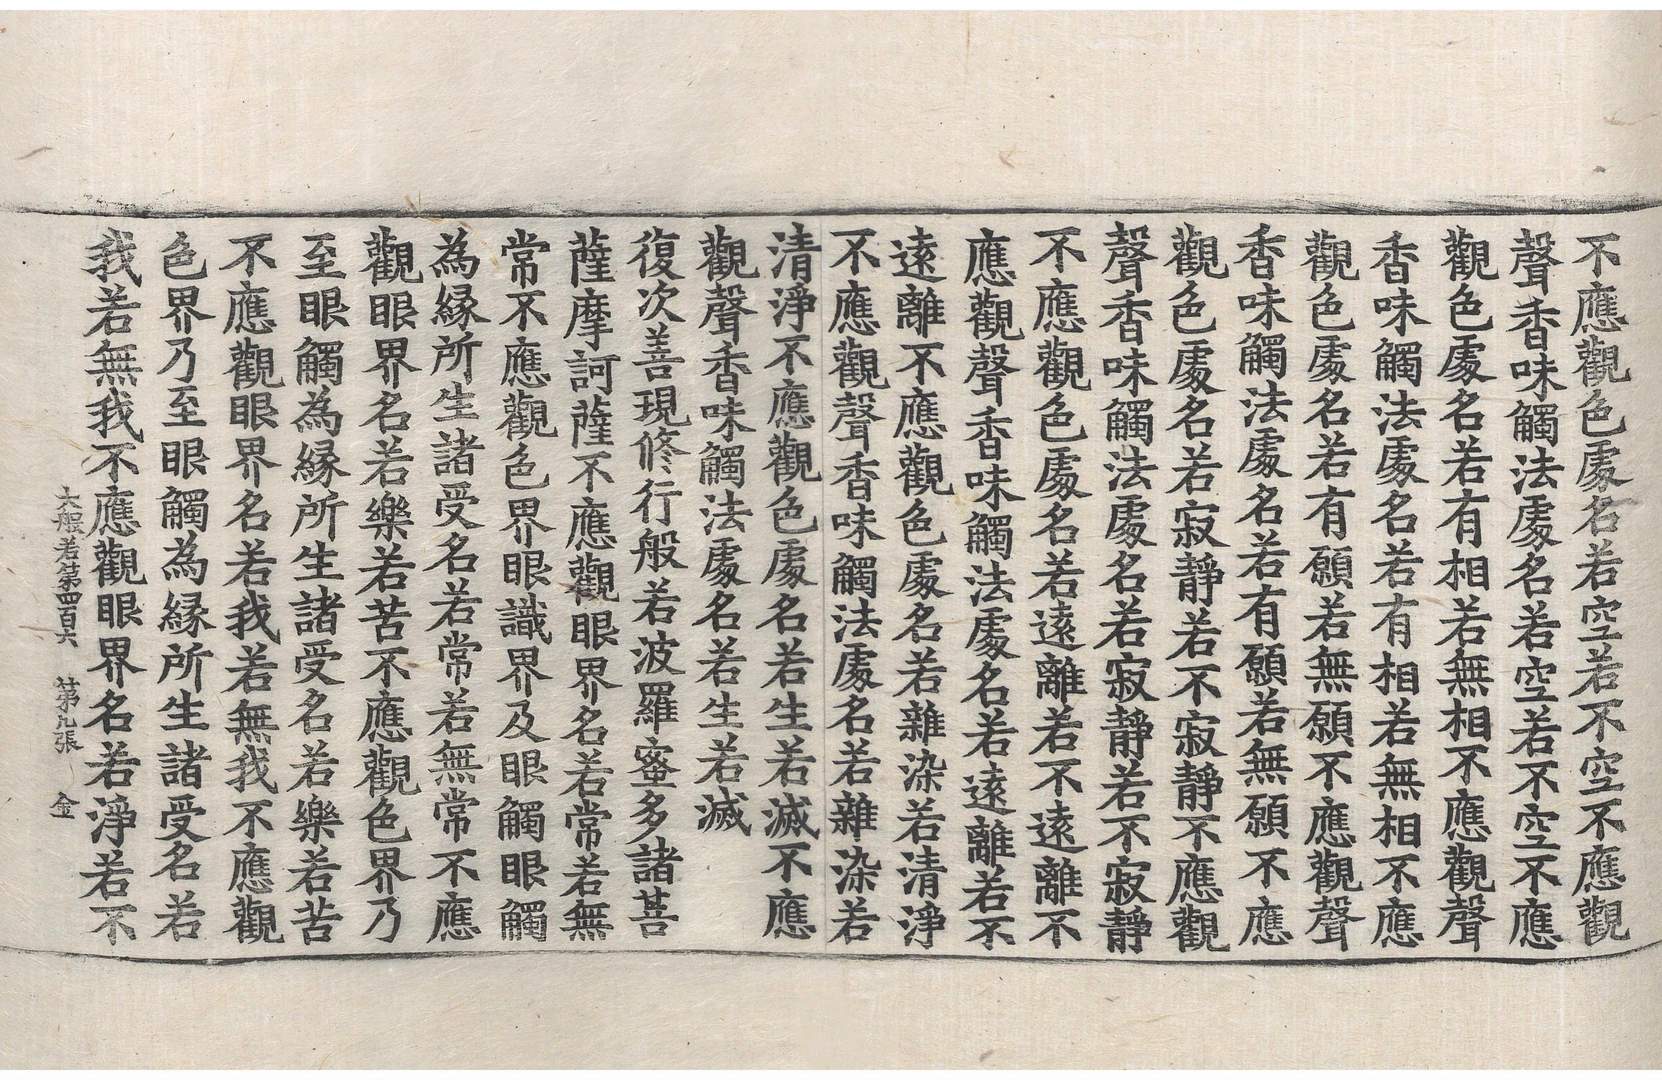 不應觀色處名若空若不空不應觀
聲香味觸法處名若空若不空不應
觀色處名若有相若無相不應觀聲
香味觸法處名若有相若無相不應
觀色處名若有願若無願不應觀聲
香味觸法處名若有願若無願不應
觀色處名若寂靜若不寂靜不應觀
聲香味觸法處名若寂靜若不寂靜
不應觀色處名若遠離若不遠離不
應觀聲香味觸法處名若遠離若不
遠離不應觀色處名若雜染若清淨
不應觀聲香味觸法處名若雜染若
清淨不應觀色處名若生若滅不應
觀聲香味觸法處名若生若滅
復次善現修行般若波羅蜜多諸菩
薩摩訶薩不應觀眼界名若常若無
常不應觀色界眼識界及眼觸眼觸
為緣所生諸受名若常若無常不應
觀眼界名若樂若苦不應觀色界乃
至眼觸為緣所生諸受名若樂若苦
不應觀眼界名若我若無我不應觀
色界乃至眼觸為緣所生諸受名若
我若無我不應觀眼界名若淨若不
大般若第四百六　第九張　金